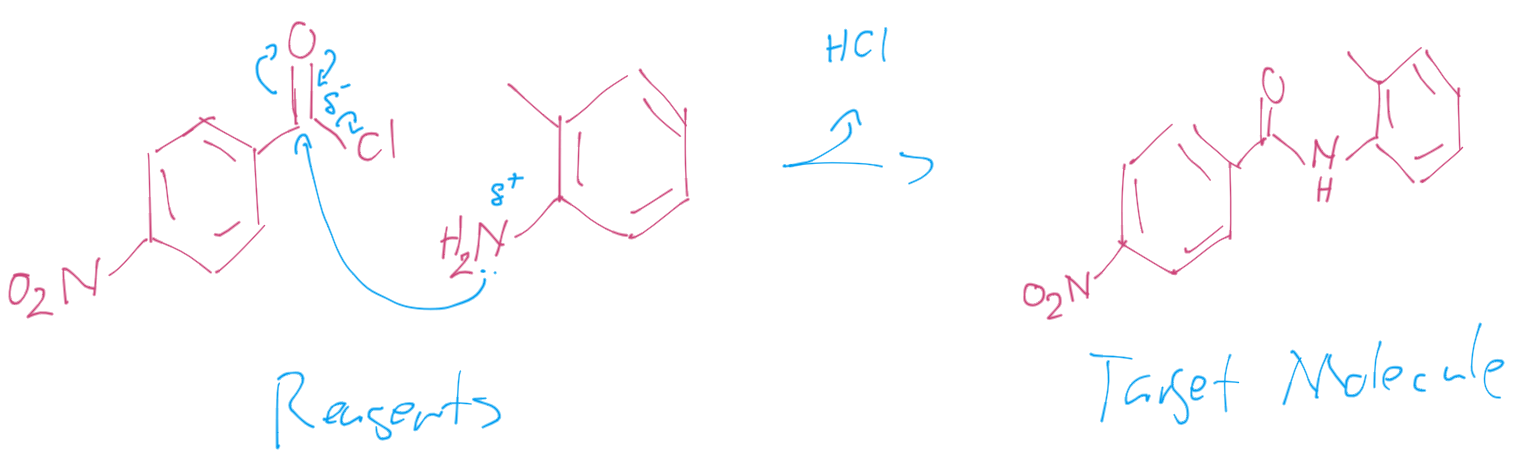 O
δ-
Cl
δ+
H2N
O2N
HCl
O
N
H
O2N
Reagents
Target Molecule